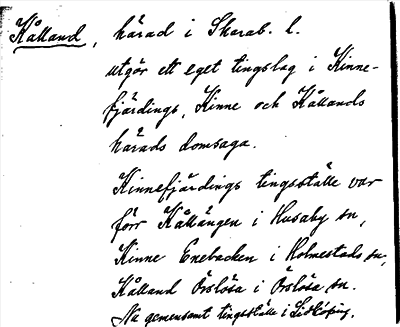 Kålland, härad i Skarab. l.
utgör ett eget tingslag i Kinne-
fjärdings, Kinne och Kållands
härads domsaga.
Kinnefjärdings tingsställe var
förr Källängen i Husaby sn,
Kinne Enebacken i Holmestads sn,
Kålland Örslösa i Örslösa sn.
Nu gemensamt tingsställe i Lidköping.